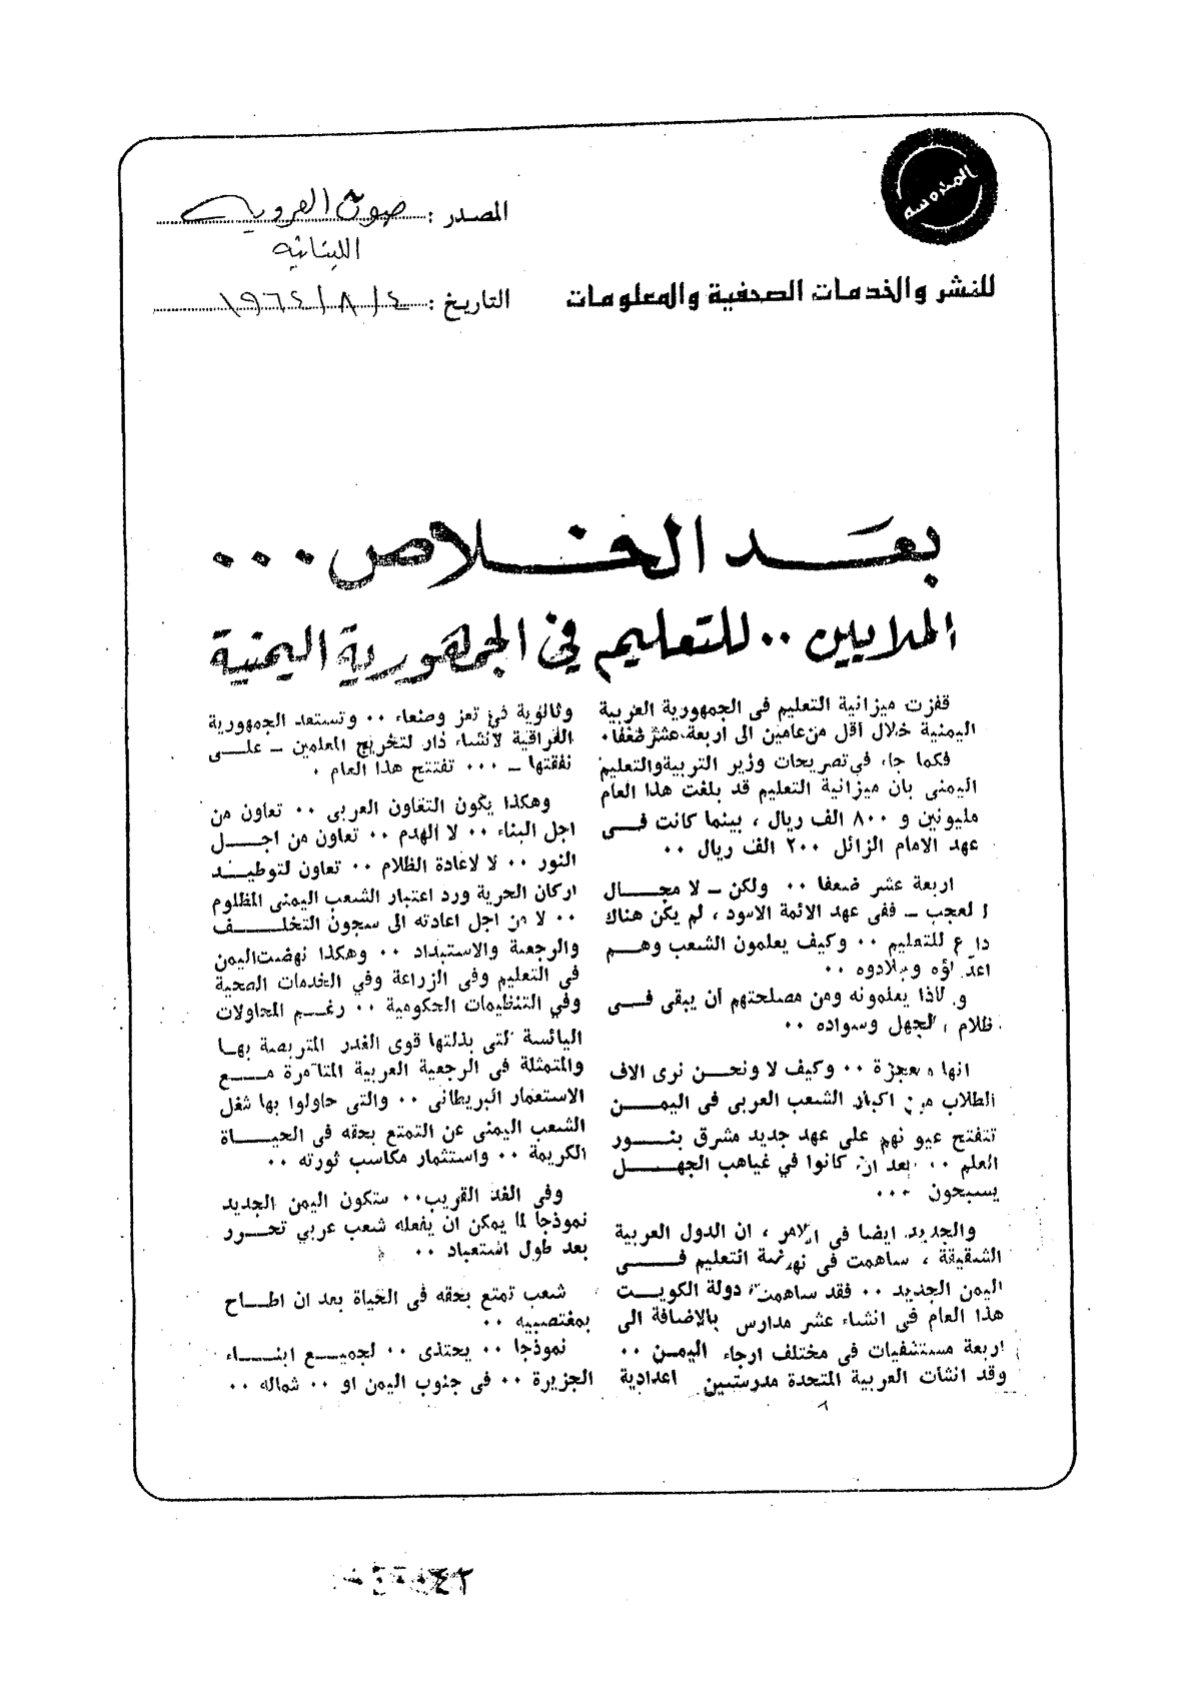 المصدر : صوت العروبة
اللبنانية
التاريخ : ٤ / ٨ / ١٩٦٤
للنشر والخدمات الصحفية والمعلومات
بعد الخلاص ...
الملايين .. للتعليم في الجمهورية اليمنية
قفزت ميزانية التعليم فى الجمهورية العربية
اليمنية خلال اقل من عامين الى اربعة عشر ضعفا .
فكما جاء في تصريحات وزير التربية والتعليم
اليمنى بان ميزانية التعليم قد بلغت هذا العام
مليونين و ٨٠٠ الف ريال ، بينما كانت فــى
عهد الامام الزائل ٢٠٠ الف ريال ..
اربعة عشر ضعفا .. ولكن ـ لا مجــال
للعجب ـ ففى عهد الائمة الاسود ، لم يكن هناك
داع للتعليم .. وكيف يعلمون الشعب وهــم
اعداؤه وجلادوه ..
ولماذا يعلمونه ومن مصلحتهم ان يبقى فــى
ظلام الجهل وسواده ..
انها معجزة .. وكيف لا ونحــن نرى الاف
الطلاب من اكباد الشعب العربى فى اليمــن
تتفتح عيونهم على عهد جديد مشرق بنــور
العلم .. بعد ان كانوا في غياهب الجهــل
يسبحون ...
والجديد ايضا فى الامر ، ان الدول العربية
الشقيقة ، ساهمت فى نهضة التعليم فــى
اليمن الجديد .. فقد ساهمت دولة الكويــت
هذا العام فى انشاء عشر مدارس بالإضافة الى
اربعة مستشفيات فى مختلف ارجاء اليمــن ..
وقد انشأت العربية المتحدة مدرستين اعدادية
وثانوية في تعز وصنعاء .. وتستعد الجمهورية
العراقية لانشاء دار لتخريج المعلمين ـ علــى
نفقتها ـ ... تفتتح هذا العام .
وهكذا يكون التعاون العربى .. تعاون من
اجل البناء .. لا الهدم .. تعاون من اجــل
النور .. لا لاعادة الظلام .. تعاون لتوطيــد
اركان الحرية ورد اعتبار الشعب اليمنى المظلوم
.. لا من اجل اعادته الى سجون التخلــف
والرجعية والاستبداد .. وهكذا نهضت اليمن
فى التعليم وفى الزراعة وفي الخدمات الصحية
وفي التنظيمات الحكومية .. رغــم المحاولات
اليائسة التى بذلتها قوى الغدر المتربصة بهــا
والمتمثلة فى الرجعية العربية المتآمرة مــع
الاستعمار البريطانى .. والتى حاولوا بها شغل
الشعب اليمنى عن التمتع بحقه فى الحيــاة
الكريمة .. واستثمار مكاسب ثورته ..
وفى الغد القريب .. ستكون اليمن الجديد
نموذجا لما يمكن ان يفعله شعب عربي تحــرر
بعد طول استعباد ..
شعب تمتع بحقه فى الحياة بعد ان اطــاح
بمغتصبيه ..
نموذجا .. يحتذى .. لجميــع ابنــاء
الجزيرة .. فى جنوب اليمن او .. شماله ..